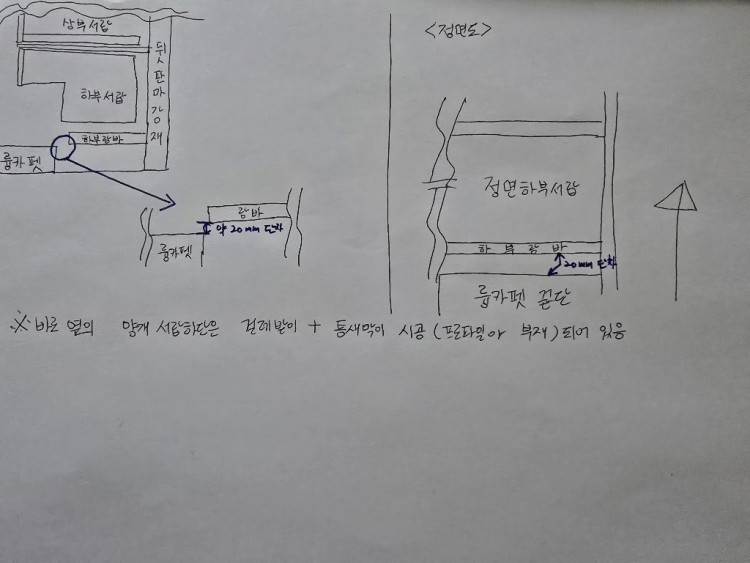 상부서랍
뒷판마감재
하부서랍
하부람바
룸카펫
람바
약 20mm 단차
룸카펫
<정면도>
정면하부서랍
하부람바
20mm 단차
룸카펫 끝단
※ 바로 옆의 양개 서랍하단은 걸레받이 + 틈새막이 시공 (프로파일 아 부재) 되어 있음